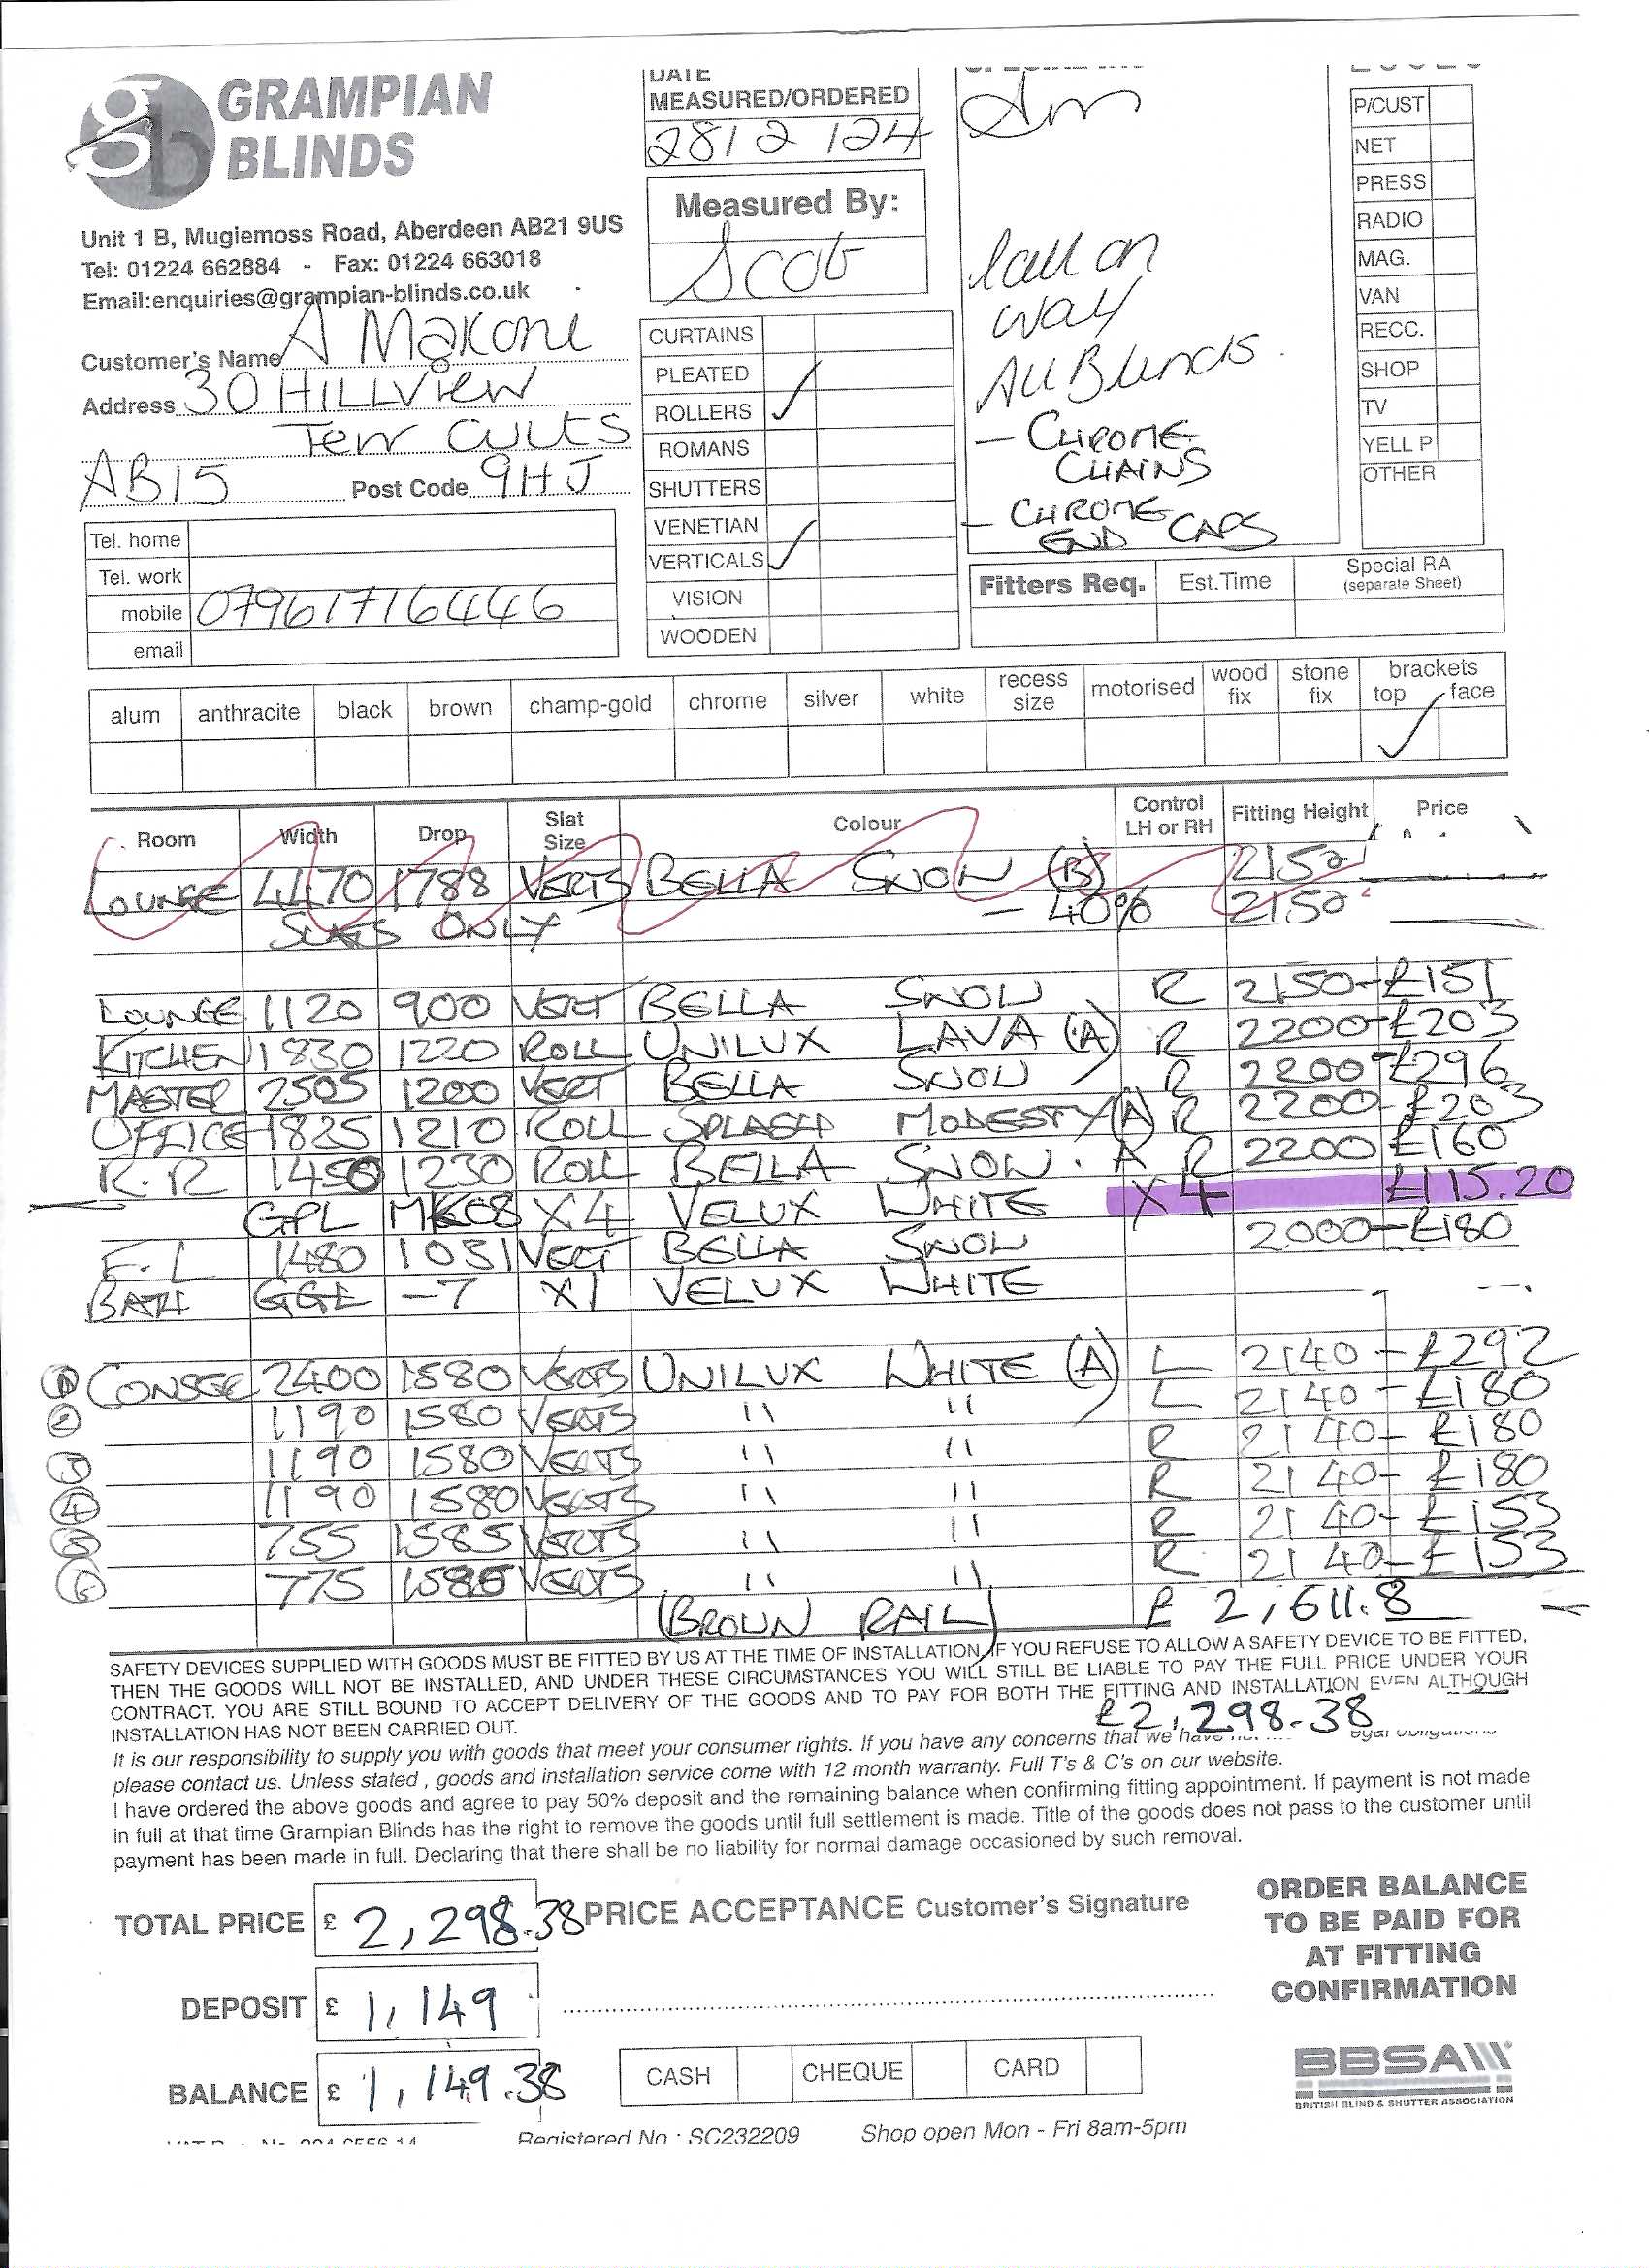 GRAMPIAN
BLINDS
Unit 1 B, Mugiemoss Road, Aberdeen AB21 9US
Tel: 01224 662884 - Fax: 01224 663018
Email:enquiries@grampian-blinds.co.uk
Customer's Name A Makone
Address 30 HILLVIEW
Terr Cults
AB15 Post Code 9HJ
Tel. home
Tel. work
mobile 07961716446
email
DATE
MEASURED/ORDERED
28/2/24
Measured By:
Scot
CURTAINS
PLEATED
ROLLERS ✓
ROMANS
SHUTTERS
VENETIAN
VERTICALS ✓
VISION
WOODEN
Am
Call on
way
All Blinds
- CHROME
CHAINS
- CHROME
END CAPS
P/CUST
NET
PRESS
RADIO
MAG.
VAN
RECC.
SHOP
TV
YELL P
OTHER
Fitters Req. Est.Time Special RA
(separate Sheet)
alum anthracite black brown champ-gold chrome silver white recess size motorised wood fix stone fix brackets top face
Room Width Drop Slat Size Colour Control LH or RH Fitting Height Price
LOUNGE 4470 1788 VERTS BELLA SNOW (B) 2152
SLATS ONLY - 40% 2150
LOUNGE 1120 900 VERT BELLA SNOW R 2150 - £151
KITCHEN 1830 1220 ROLL UNILUX LAVA (A) R 2200 - £203
MASTER 2505 1200 VERT BELLA SNOW R 2200 - £296
OFFICE 1825 1210 ROLL SPLASH MODESTY (A) R 2200 - £203
R.R 1450 1230 ROLL BELLA SNOW . A R 2200 £160
GPL MK08 X4 VELUX WHITE X4 £115.20
F.L 1480 1031 VERT BELLA SNOW 2000 - £180
BATH GGL -7 X1 VELUX WHITE
① CONSGE 2400 1580 VERTS UNILUX WHITE (A) L 2140 - £292
② 1190 1580 VERTS " " L 2140 - £180
③ 1190 1580 VERTS " " R 2140 - £180
④ 1190 1580 VERTS " " R 2140 - £180
⑤ 755 1585 VERTS " " R 2140 - £153
⑥ 775 1585 VERTS " " R 2140 - £153
(BROWN RAIL) £ 2,611.8
SAFETY DEVICES SUPPLIED WITH GOODS MUST BE FITTED BY US AT THE TIME OF INSTALLATION, IF YOU REFUSE TO ALLOW A SAFETY DEVICE TO BE FITTED,
THEN THE GOODS WILL NOT BE INSTALLED, AND UNDER THESE CIRCUMSTANCES YOU WILL STILL BE LIABLE TO PAY THE FULL PRICE UNDER YOUR
CONTRACT. YOU ARE STILL BOUND TO ACCEPT DELIVERY OF THE GOODS AND TO PAY FOR BOTH THE FITTING AND INSTALLATION EVEN ALTHOUGH
INSTALLATION HAS NOT BEEN CARRIED OUT.
£2,298.38
It is our responsibility to supply you with goods that meet your consumer rights. If you have any concerns that we have legal obligations
please contact us. Unless stated , goods and installation service come with 12 month warranty. Full T's & C's on our website.
I have ordered the above goods and agree to pay 50% deposit and the remaining balance when confirming fitting appointment. If payment is not made
in full at that time Grampian Blinds has the right to remove the goods until full settlement is made. Title of the goods does not pass to the customer until
payment has been made in full. Declaring that there shall be no liability for normal damage occasioned by such removal.
TOTAL PRICE £ 2,298.38 PRICE ACCEPTANCE Customer's Signature
DEPOSIT £ 1,149
BALANCE £ 1,149.38
CASH CHEQUE CARD
ORDER BALANCE
TO BE PAID FOR
AT FITTING
CONFIRMATION
BBSA
BRITISH BLIND & SHUTTER ASSOCIATION
Registered No : SC232209 Shop open Mon - Fri 8am-5pm